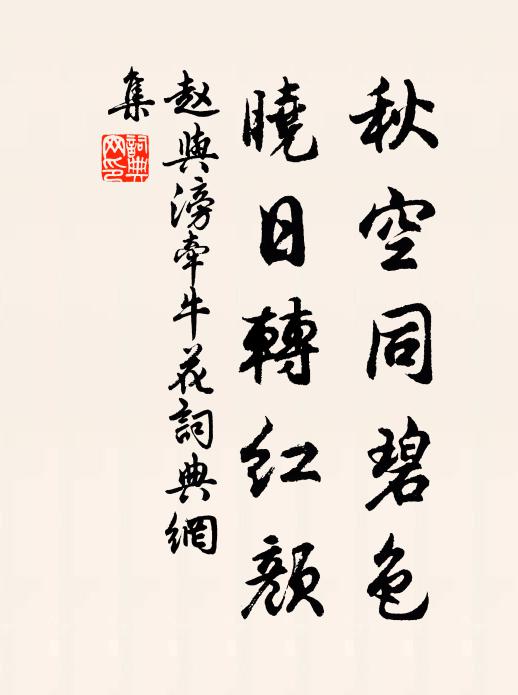 秋空同碧色
曉日轉紅顏
赵與滂牽牛花詞典網
集
詞典
网印